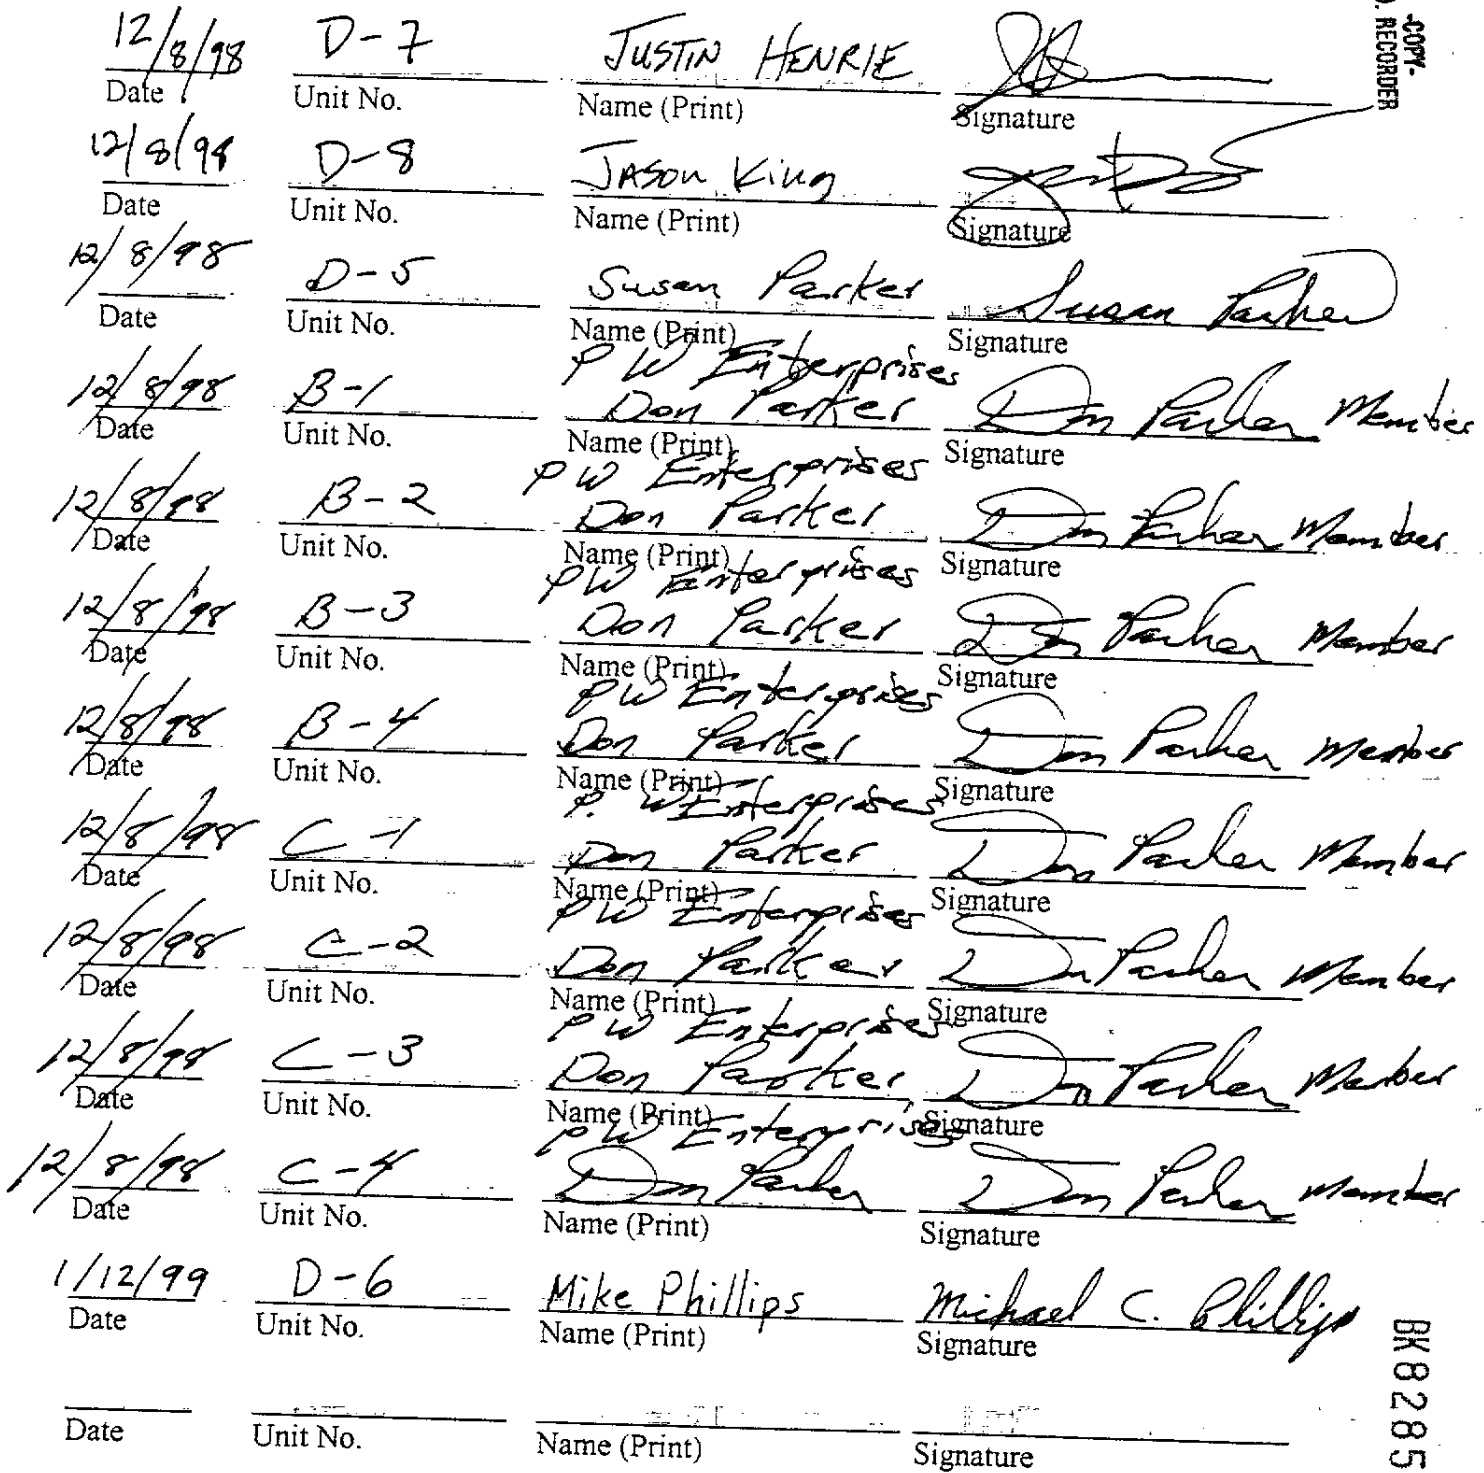 -COPY-
. RECORDER
12/8/98 D-7 JUSTIN HENRIE
Date Unit No. Name (Print) Signature
12/8/98 D-8 JASON King
Date Unit No. Name (Print) Signature
12/8/98 D-5 Susan Parker Susan Parker
Date Unit No. Name (Print) Signature
PW Enterprises
12/8/98 B-1 Don Parker Don Parker Member
Date Unit No. Name (Print) Signature
PW Enterprises
12/8/98 B-2 Don Parker Don Parker Member
Date Unit No. Name (Print) Signature
PW Enterprises
12/8/98 B-3 Don Parker Don Parker Member
Date Unit No. Name (Print) Signature
PW Enterprises
12/8/98 B-4 Don Parker Don Parker Member
Date Unit No. Name (Print) Signature
P. W Enterprises
12/8/98 C-1 Don Parker Don Parker Member
Date Unit No. Name (Print) Signature
PW Enterprises
12/8/98 C-2 Don Parker Don Parker Member
Date Unit No. Name (Print) Signature
PW Enterprises
12/8/98 C-3 Don Parker Don Parker Member
Date Unit No. Name (Print) Signature
PW Enterprises
12/8/98 C-4 Don Parker Don Parker Member
Date Unit No. Name (Print) Signature
1/12/99 D-6 Mike Phillips Michael C. Phillips
Date Unit No. Name (Print) Signature
Date Unit No. Name (Print) Signature
BK8285